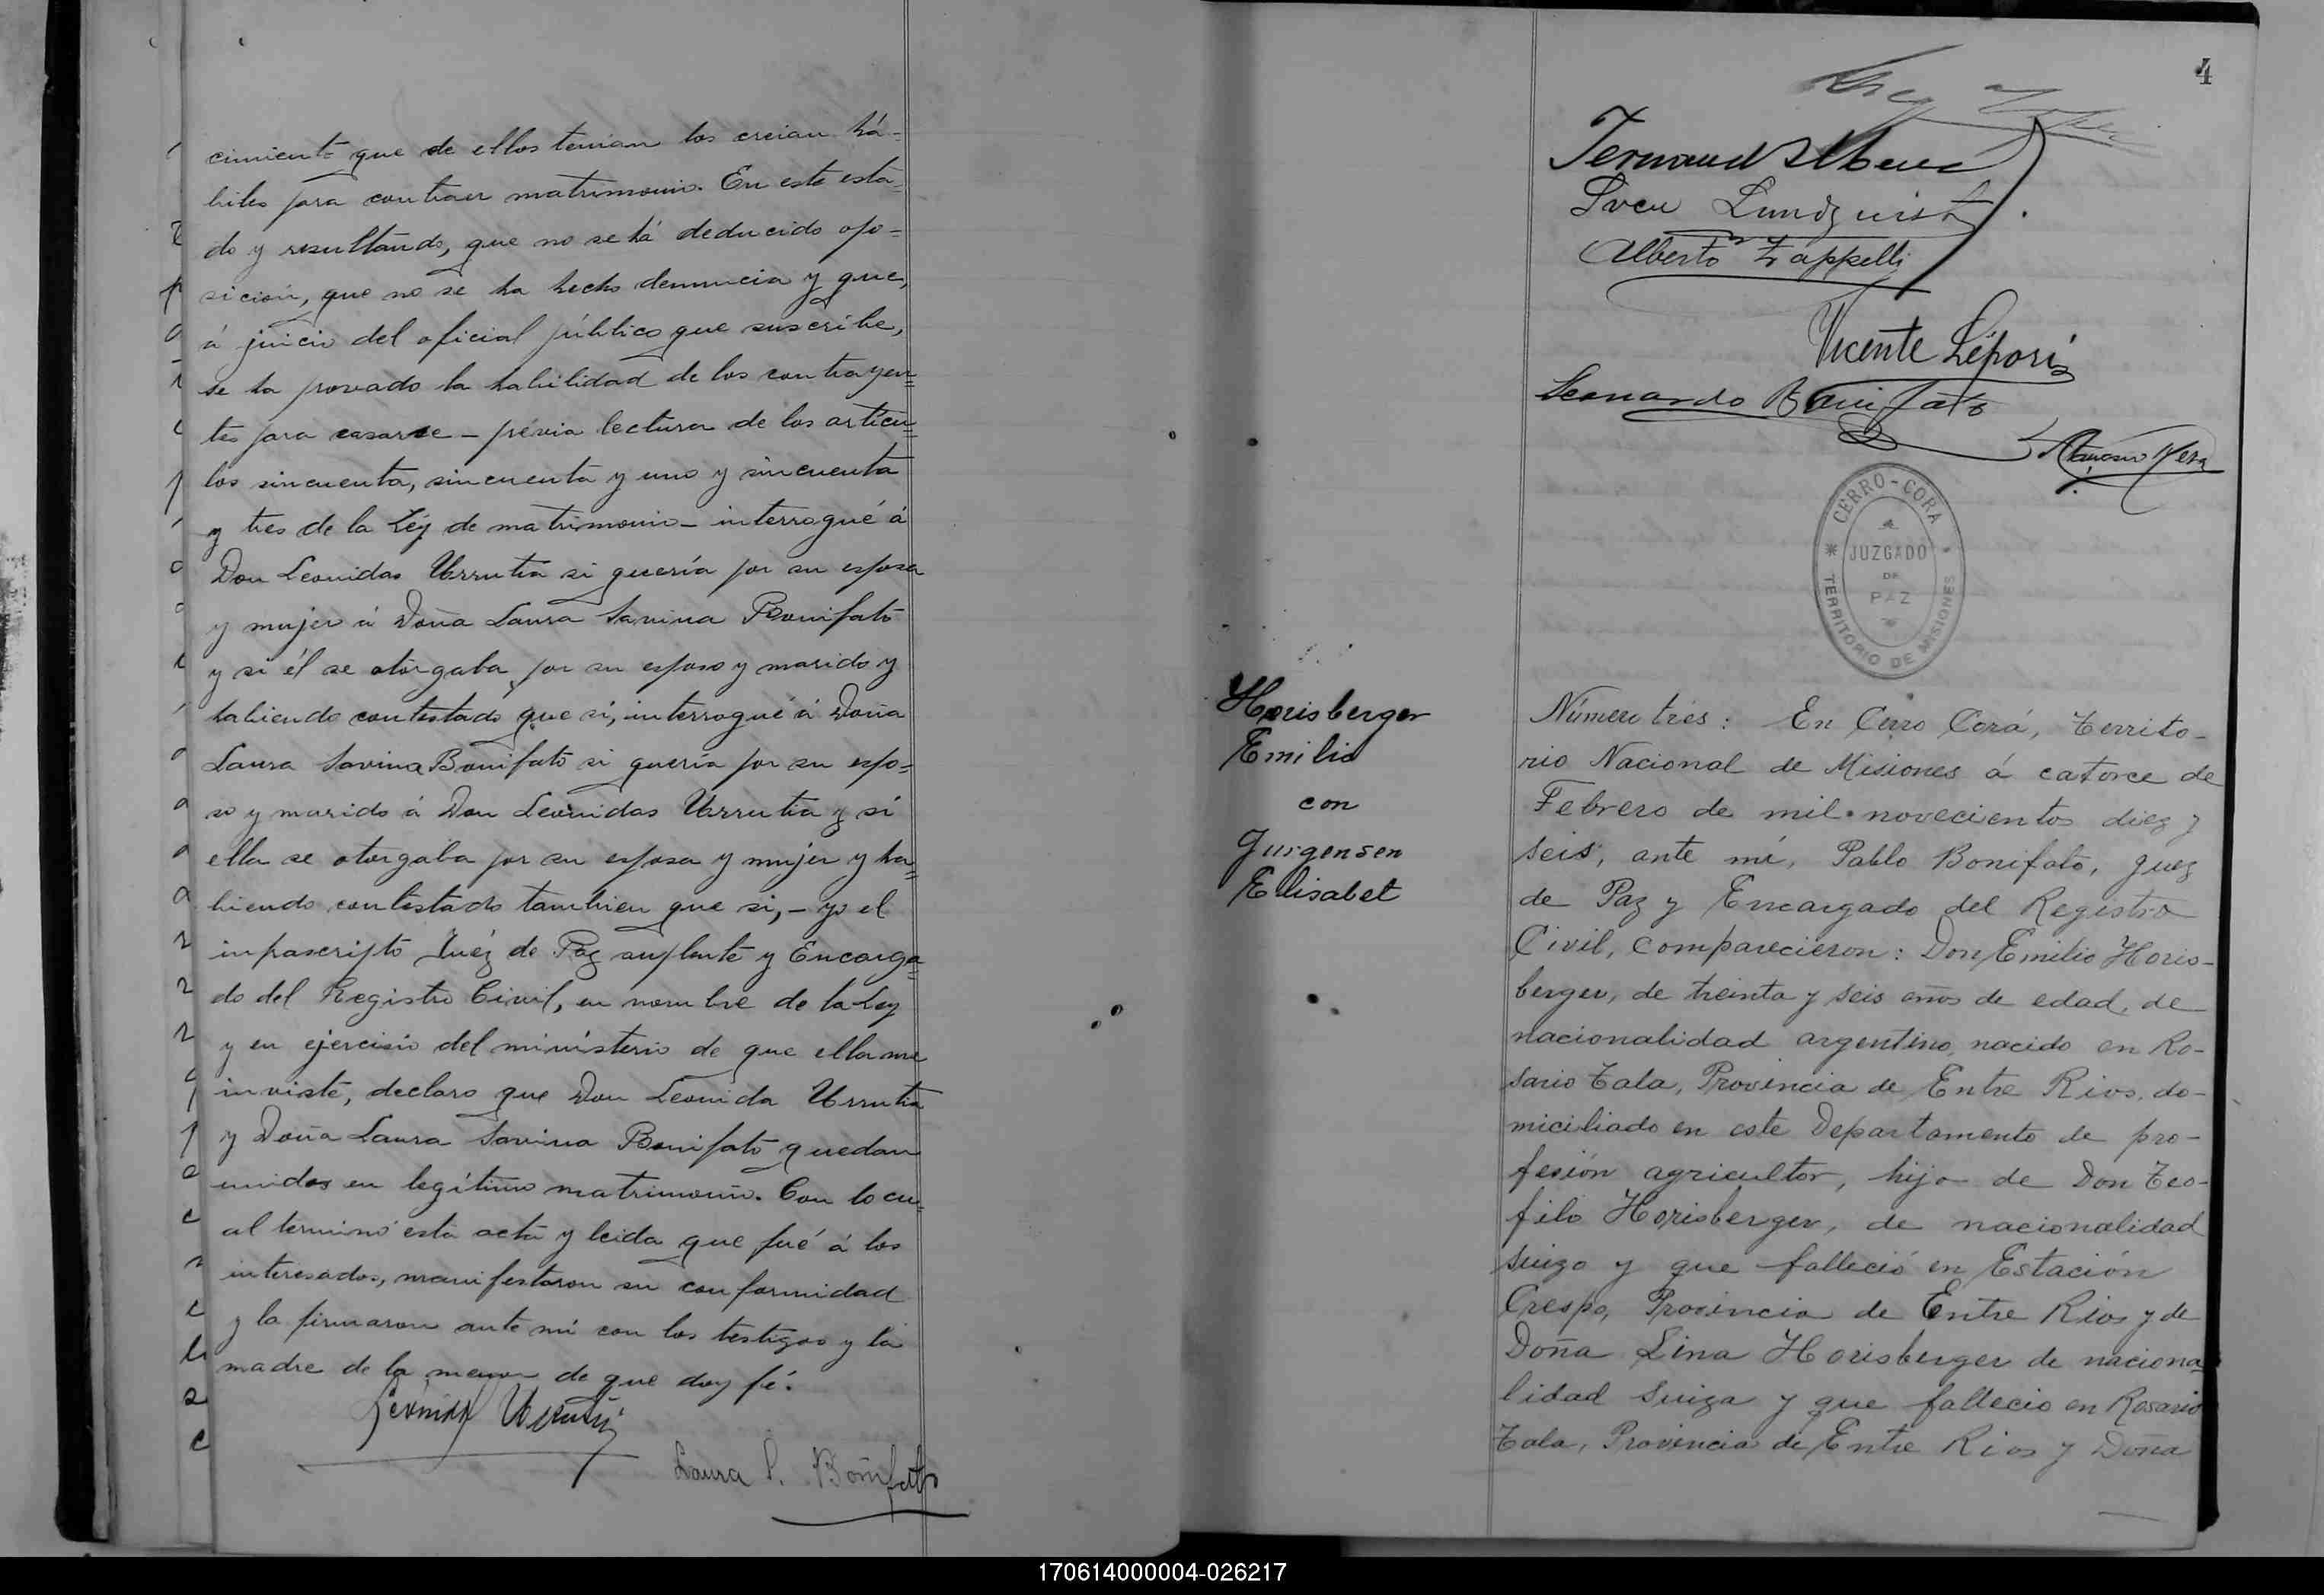 cimiento que de ellos tenian los creian há-
biles para contraer matrimonio. En este esta=
do y resultando, que no se há deducido opo=
sición, que no se ha hecho denuncia y que,
á juicio del oficial público que suscribe,
se ha provado la habilidad de los contrayen=
tes para casarse _ prévia lectura de los artícu=
los sincuenta, sincuenta y uno y sincuenta
y tres de la Léy de matrimonio _ interrogué á
Don Leonidas Urrutia si quería por su esposa
y mujer á Doña Laura Savina Bonifato
y si él se otorgaba por su esposo y marido y
habiendo contestado que sí, interrogué á Doña
Laura Savina Bonifato si quería por su espo=
so y marido á Don Leonidas Urrutia y si
ella se otorgaba por su esposa y mujer y ha=
biendo contestado tambien que si, _ yo el
infrascripto Juéz de Paz suplente y Encarga=
do del Registro Civil, en nombre de la Ley
y en ejercisio del ministerio de que ella me
inviste, declaro que Don Leonida Urrutia
y Doña Laura Savina Bonifato quedan
unidos en legítimo matrimonio. Con lo cu=
al terminó esta acta y leida que fué á los
interesados, manifestaron su conformidad
y la firmaron ante mi con los testigos y la
madre de la menor de que doy fé.
Leonida Urrutia
Laura S. Bonifato
4
Sven Lundquist
Alberto Zappelli
Vicente Lépori
Leonardo Bonifato
CERRO-CORA
JUZGADO
DE
PAZ
TERRITORIO DE MISIONES
Horisberger
Emilio
con
Jurgensen
Elisabet
Número tres: En Cerro Corá, Territo-
rio Nacional de Misiones á catorce de
Febrero de mil novecientos diez y
seis, ante mí, Pablo Bonifato, Juez
de Paz y Encargado del Registro
Civil, comparecieron: Don Emilio Horis-
berger, de treinta y seis años de edad, de
nacionalidad argentino, nacido en Ro-
sario Tala, Provincia de Entre Rios, do-
miciliado en este Departamento de pro-
fesión agricultor, hijo de Don Teo-
filo Horisberger, de nacionalidad
suizo y que falleció en Estación
Crespo, Provincia de Entre Rios y de
Doña Lina Horisberger de naciona
lidad Suiza y que fallecio en Rosario
Tala, Provincia de Entre Rios y Doña
170614000004-026217